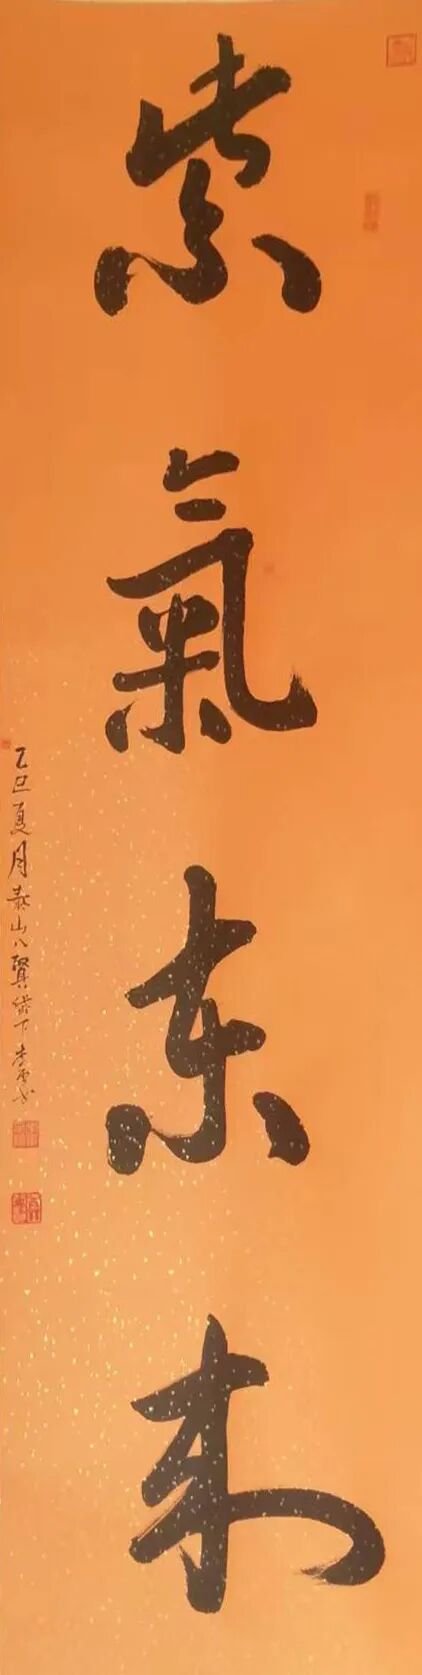 紫氣东来
乙巳夏月泰山八賢